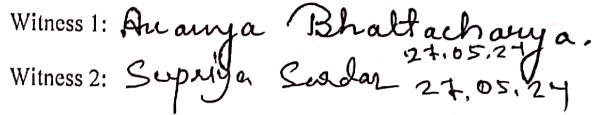 Witness 1: Ananya Bhattacharya.
27.05.24
Witness 2: Supriya Sardar 27.05.24